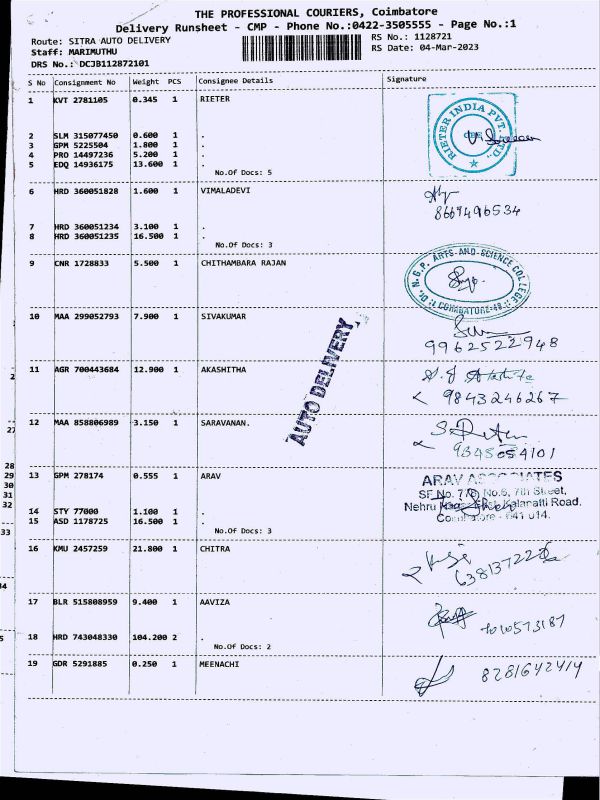 THE PROFESSIONAL COURIERS, Coimbatore
Delivery Runsheet - CMP - Phone No.:0422-3505555 - Page No.:1
Route: SITRA AUTO DELIVERY
RS No.: 1128721
Staff: MARIMUTHU
RS Date: 04-Mar-2023
DRS No.: DCJB112872101
S No Consignment No Weight PCS Consignee Details Signature
1 KVT 2781105 0.345 1 RIETER
RIETER INDIA PVT. LTD.
2 SLM 315077450 0.600 1 .
3 GPM 5225504 1.800 1 .
4 PRO 14497236 5.200 1 .
5 EDQ 14936175 13.600 1 .
No.Of Docs: 5
6 HRD 360051828 1.600 1 VIMALADEVI
8669496534
7 HRD 360051234 3.100 1 .
8 HRD 360051235 16.500 1 .
No.Of Docs: 3
9 CNR 1728833 5.500 1 CHITHAMBARA RAJAN
Dr. N.G.P. ARTS AND SCIENCE COLLEGE
COIMBATORE-48
10 MAA 299052793 7.900 1 SIVAKUMAR
9962522948
AUTO DELIVERY
11 AGR 700443684 12.900 1 AKASHITHA
9843246267
12 MAA 858806989 3.150 1 SARAVANAN.
9345054101
13 GPM 278174 0.555 1 ARAV
ARAV ASSOCIATES
SF No. 7 No.6, 7th Street,
Nehru East, Kalapatti Road.
Coimbatore - 641 014.
14 STY 77000 1.100 1 .
15 ASD 1178725 16.500 1 .
No.Of Docs: 3
16 KMU 2457259 21.800 1 CHITRA
17 BLR 515808959 9.400 1 AAVIZA
18 HRD 743048330 104.200 2 .
No.Of Docs: 2
19 GDR 5291885 0.250 1 MEENACHI
8281642414
27
28
29
30
31
32
33